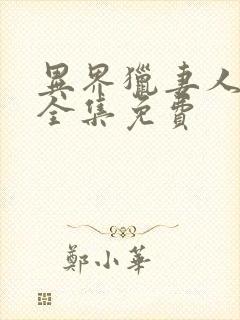 異界獵妻人
全集免費
鄭小華